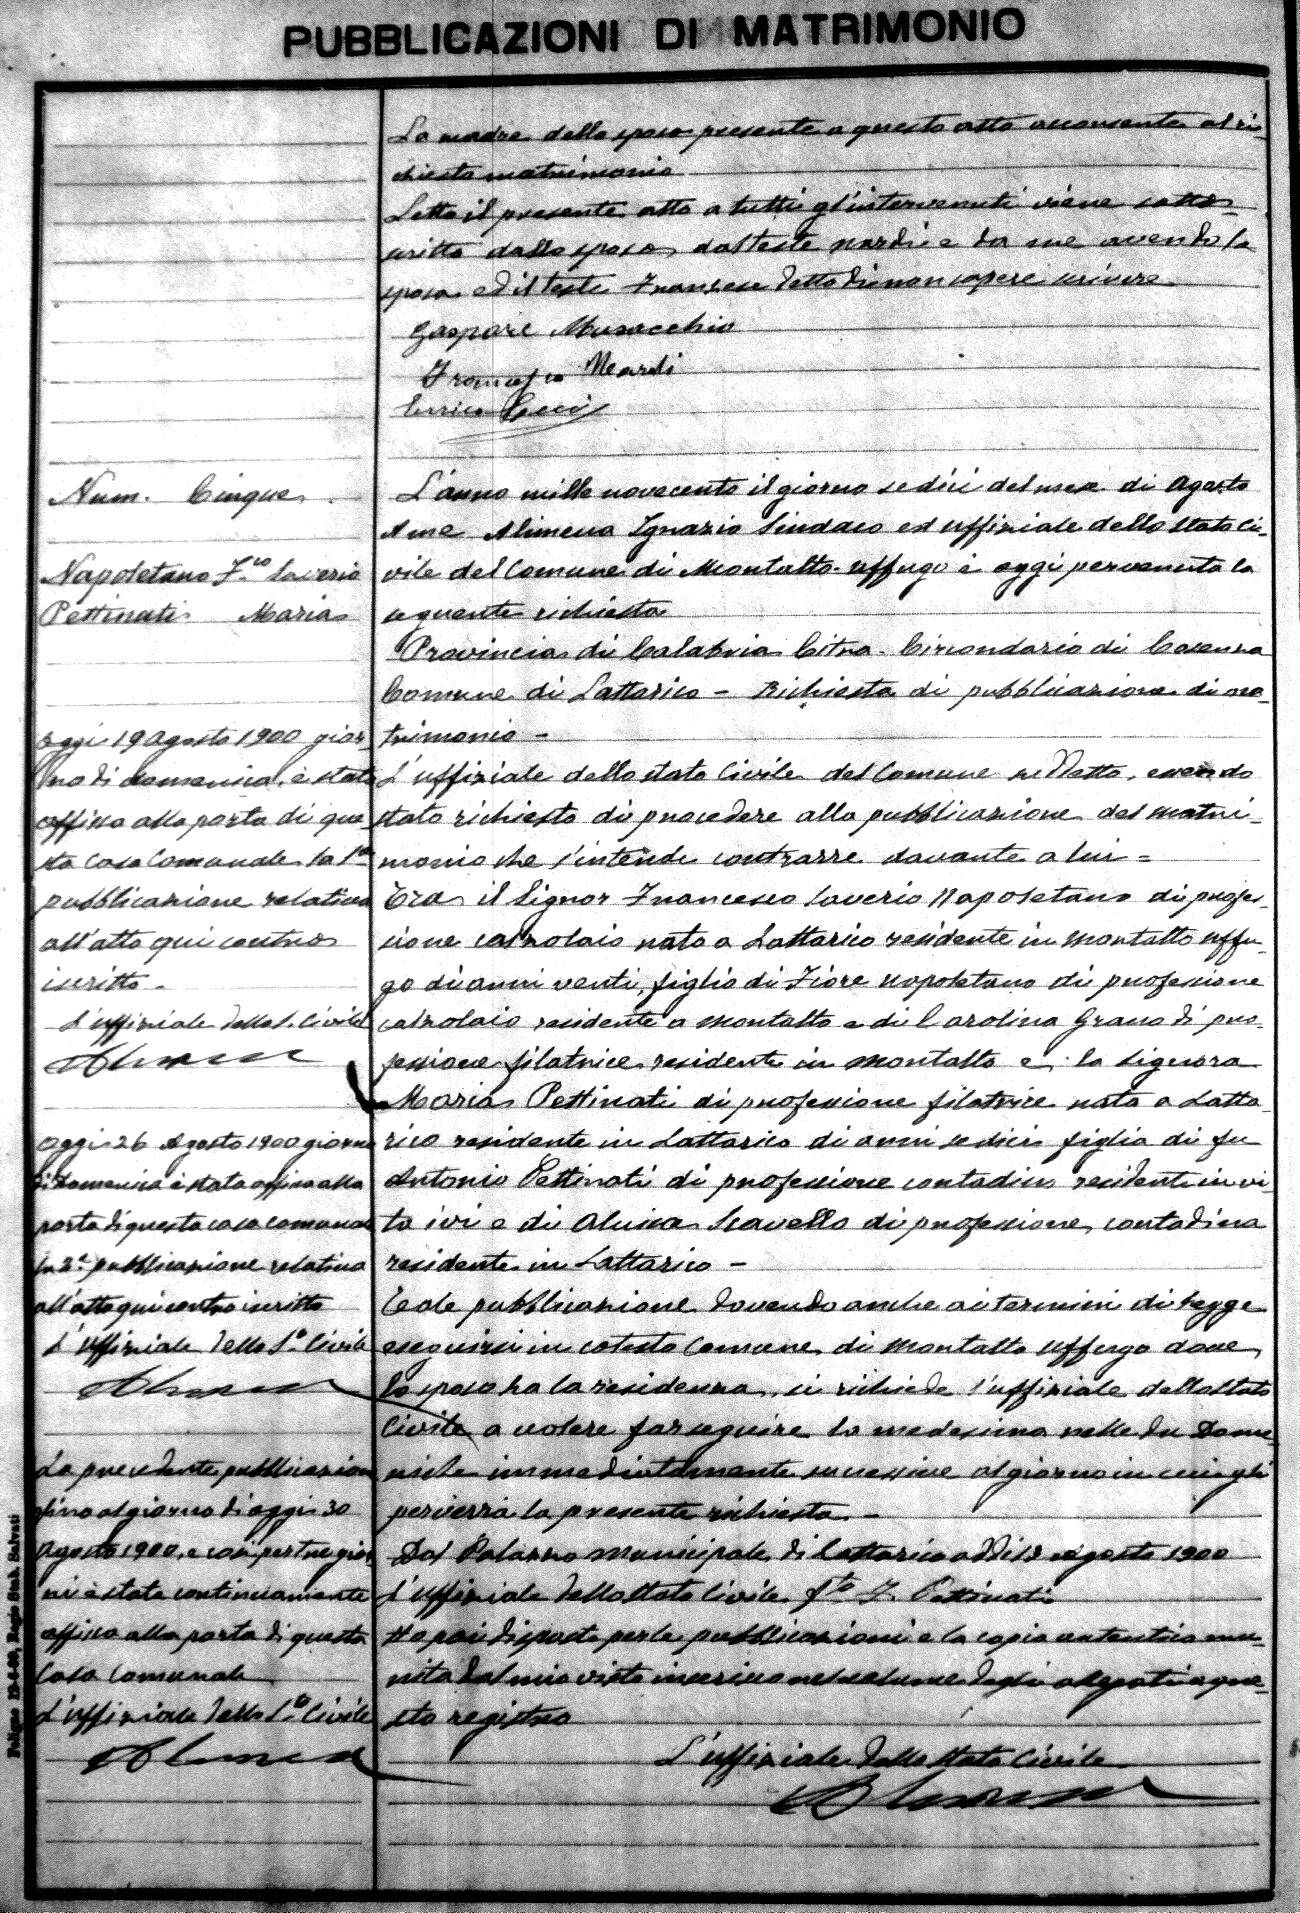 PUBBLICAZIONI DI MATRIMONIO
La madre dello sposo presente a questo atto acconsente al ri-
chiesto matrimonio
Letto il presente atto a tutti gl'intervenuti viene sotto-
scritto dallo sposo, dal teste Nardi e da me avendo la
sposa ed il teste Francese detto di non sapere scrivere
Gaspare Musacchio
Francesco Nardi
Enrico
Num. Cinque
Napoletano F.co Saverio
Pettinati Maria
oggi 19 Agosto 1900 gior-
no di domenica, è stata
affissa alla porta di que-
sta casa Comunale la 1a
pubblicazione relativa
all'atto qui contro
iscritto.
L'uffiziale dello S. Civile
Alimena
oggi 26 Agosto 1900 giorno
di Domenica è stata affissa alla
porta di questa casa comunale
la 2a pubblicazione relativa
all'atto qui contro iscritto
L'Uffiziale dello S.to Civile
Alimena
La precedente pubblicazione
fino al giorno di oggi 30
Agosto 1900, e così per tre gior-
ni è stata continuamente
affissa alla porta di questa
Casa Comunale
L'uffiziale dello S.to Civile
Alimena
L'anno mille novecento il giorno sedici del mese di Agosto
A me Alimena Ignazio Sindaco ed uffiziale dello stato Ci-
vile del Comune di Montalto-uffugo è oggi pervenuta la
seguente richiesta
Provincia di Calabria Citra - Circondario di Cosenza
Comune di Lattarico - Richiesta di pubblicazione di ma-
trimonio -
L'uffiziale dello stato Civile del Comune suddetto, essendo
stato richiesto di procedere alla pubblicazione del matri-
monio che s'intende contrarre davante a lui =
Tra il Signor Francesco Saverio Napoletano di profes-
sione calzolaio nato a Lattarico residente in Montalto uffu-
go di anni venti, figlio di Fiore Napoletano di professione
calzolaio residente a Montalto e di Carolina Grano di pro-
fessione filatrice residente in Montalto e la Signora
Maria Pettinati di professione filatrice nata a Latta-
rico residente in Lattarico di anni sedici figlia di fu
Antonio Pettinati di professione contadino residente in vi-
ta ivi e di Scavello di professione contadina
residente in Lattarico -
E tale pubblicazione dovendo anche ai termini di legge
eseguirsi in cotesto Comune di Montalto Uffugo dove
lo sposo ha la residenza, si richiede l'uffiziale dello stato
Civile a volere far seguire la medesima nelle due Dome-
niche immediatamente successive al giorno in cui gli
perverrà la presente richiesta -
Dal Palazzo Municipale di Lattarico addì 12 Agosto 1900
L'uffiziale dello stato Civile f.to F. Pettinati
Ho poi disposto per le pubblicazioni e la copia autentica mu-
nita del mio visto inserisco nel volume degli allegati a que-
sto registro
L'uffiziale dello Stato Civile
Alimena